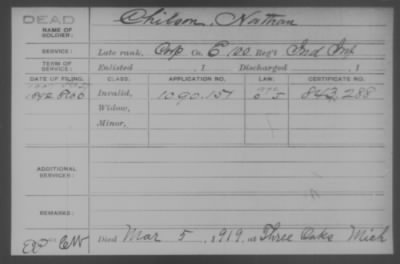 DEAD
NAME OF SOLDIER: Chilson, Nathan
SERVICE: Late rank, Corp Co. E 100 Reg't Ind Inf
TERM OF SERVICE: Enlisted , 1 Discharged , 1
DATE OF FILING. CLASS. APPLICATION NO. LAW. CERTIFICATE NO.
1892 Invalid, 1090.157 843,288
Widow,
Minor,
ADDITIONAL SERVICES:
REMARKS:
Died Mar 5, 1919, at Three Oaks Mich